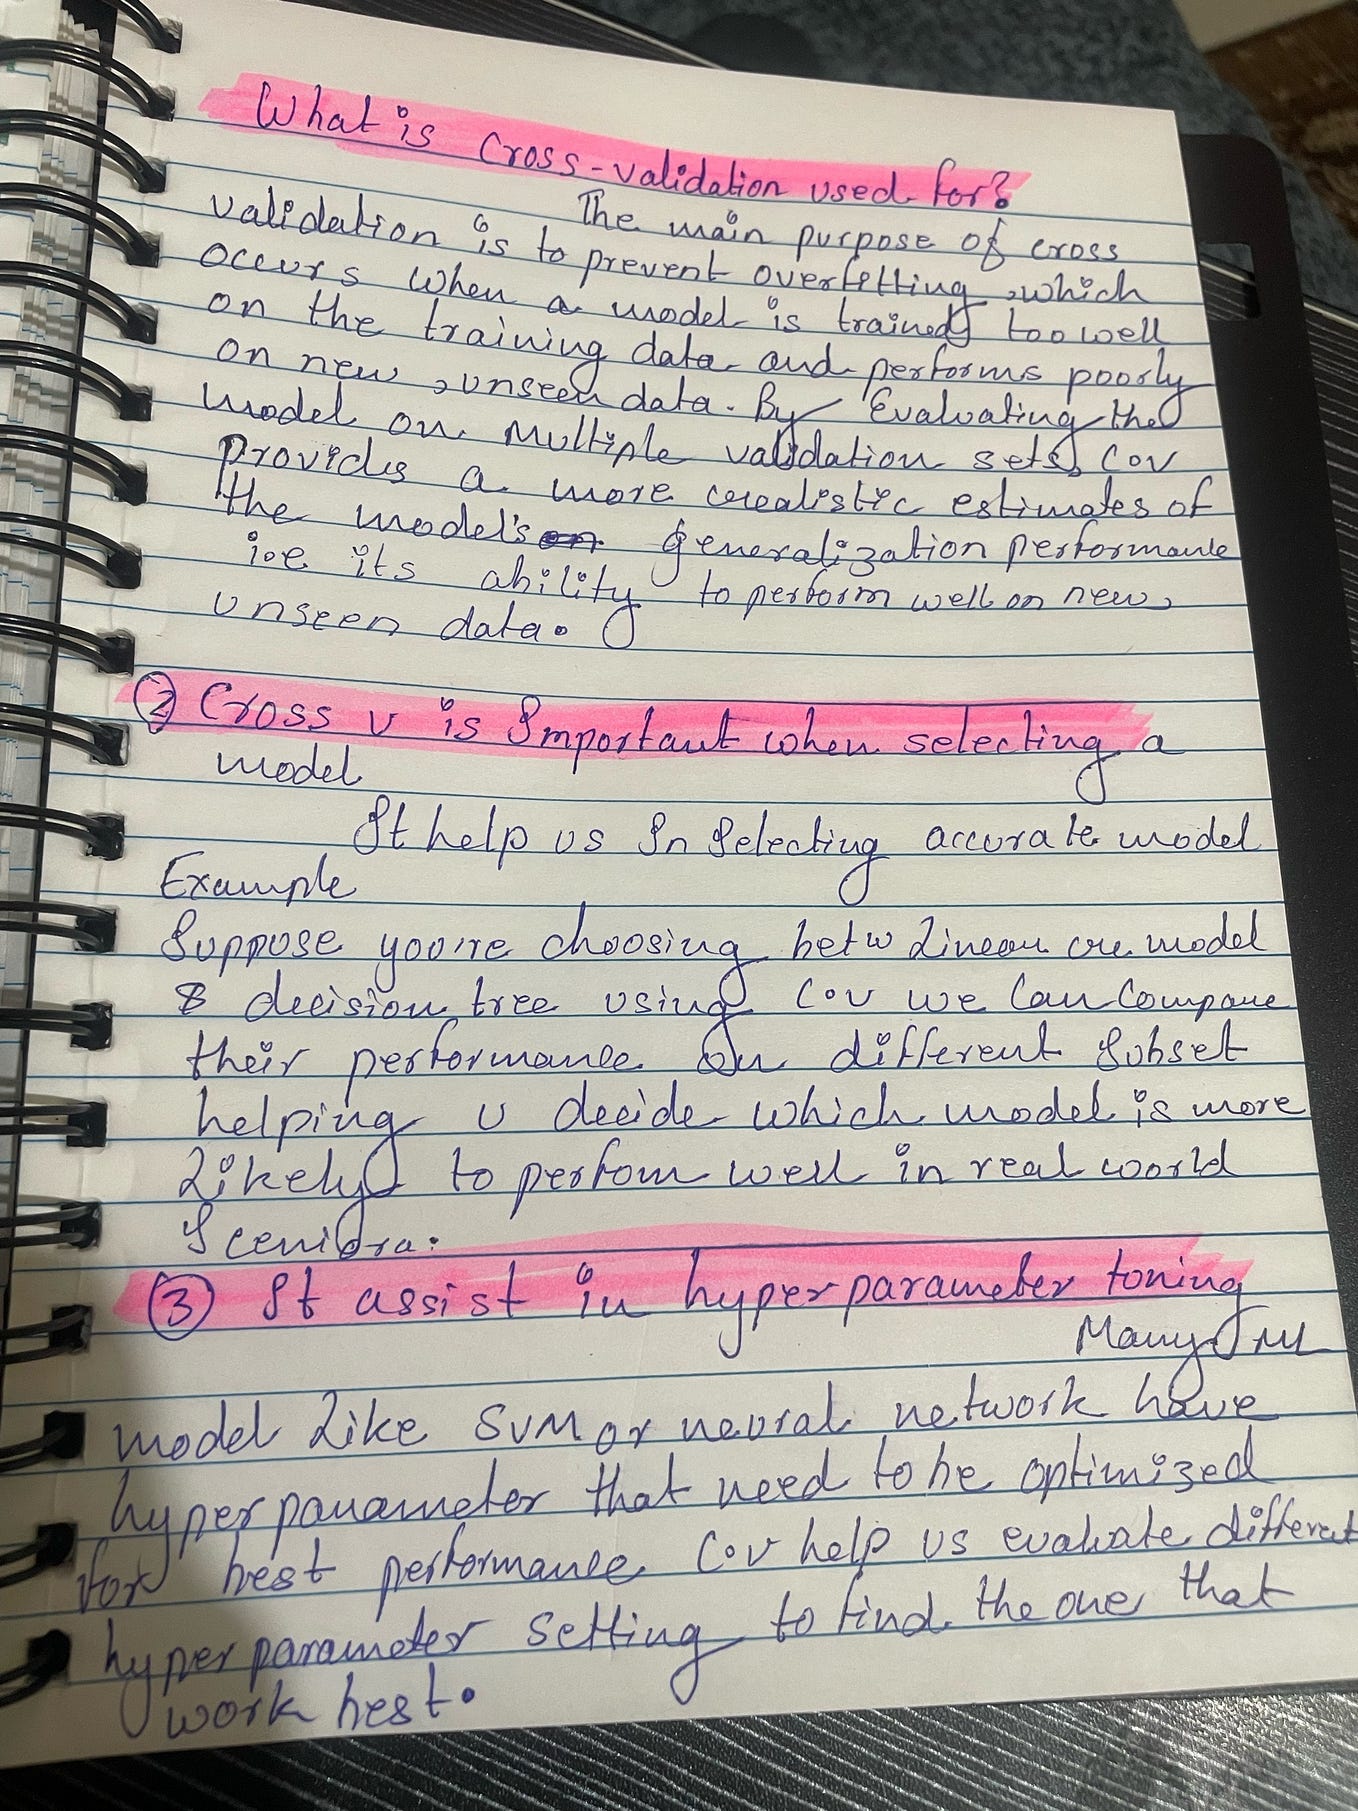 What is Cross-validation used for?
The main purpose of cross
validation is to prevent overfitting, which
occurs when a model is trained too well
on the training data and performs poorly
on new, unseen data. By Evaluating the
model on Multiple validation sets, Cov
Provides a more realistic estimates of
the model's generalization performance
i.e its ability to perform well on new,
unseen data.
② Cross v is Important when selecting a
model
It help us In Selecting accurate model
Example
Suppose you're choosing betw Linear model
& decision tree using Cov we Can Compare
their performance On different Subset
helping u decide which model is more
Likely to perfom well in real world
③ It assist in hyperparameter toning
Many ML
model Like SVM or neural network have
hyperparameter that need to be optimized
for best performance Cov help us evaluate different
hyperparameter setting to find the one that
work best.